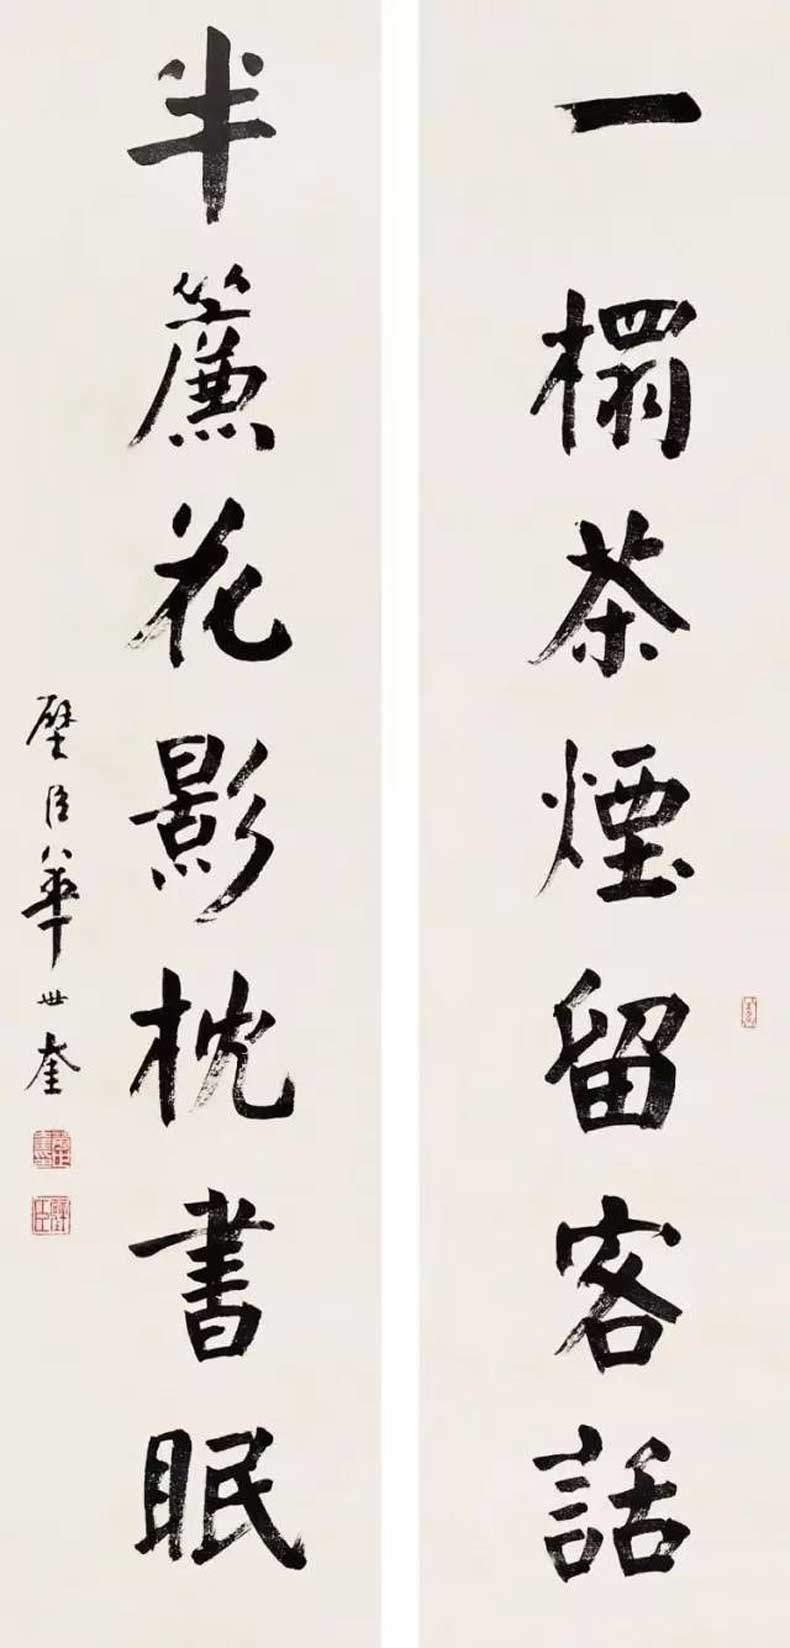 一榻茶煙留客話
半簾花影枕書眠
璧臣華世奎